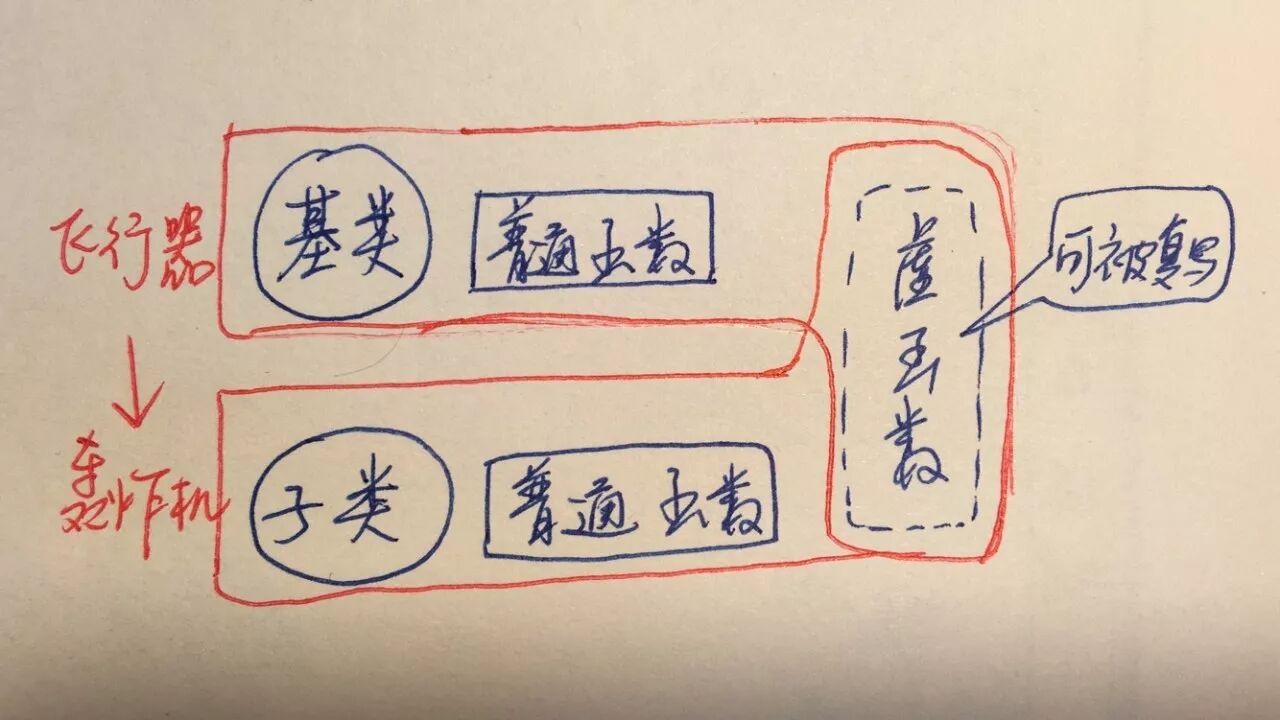 飞行器
基类
普通函数
虚函数
可被复写
轰炸机
子类
普通函数